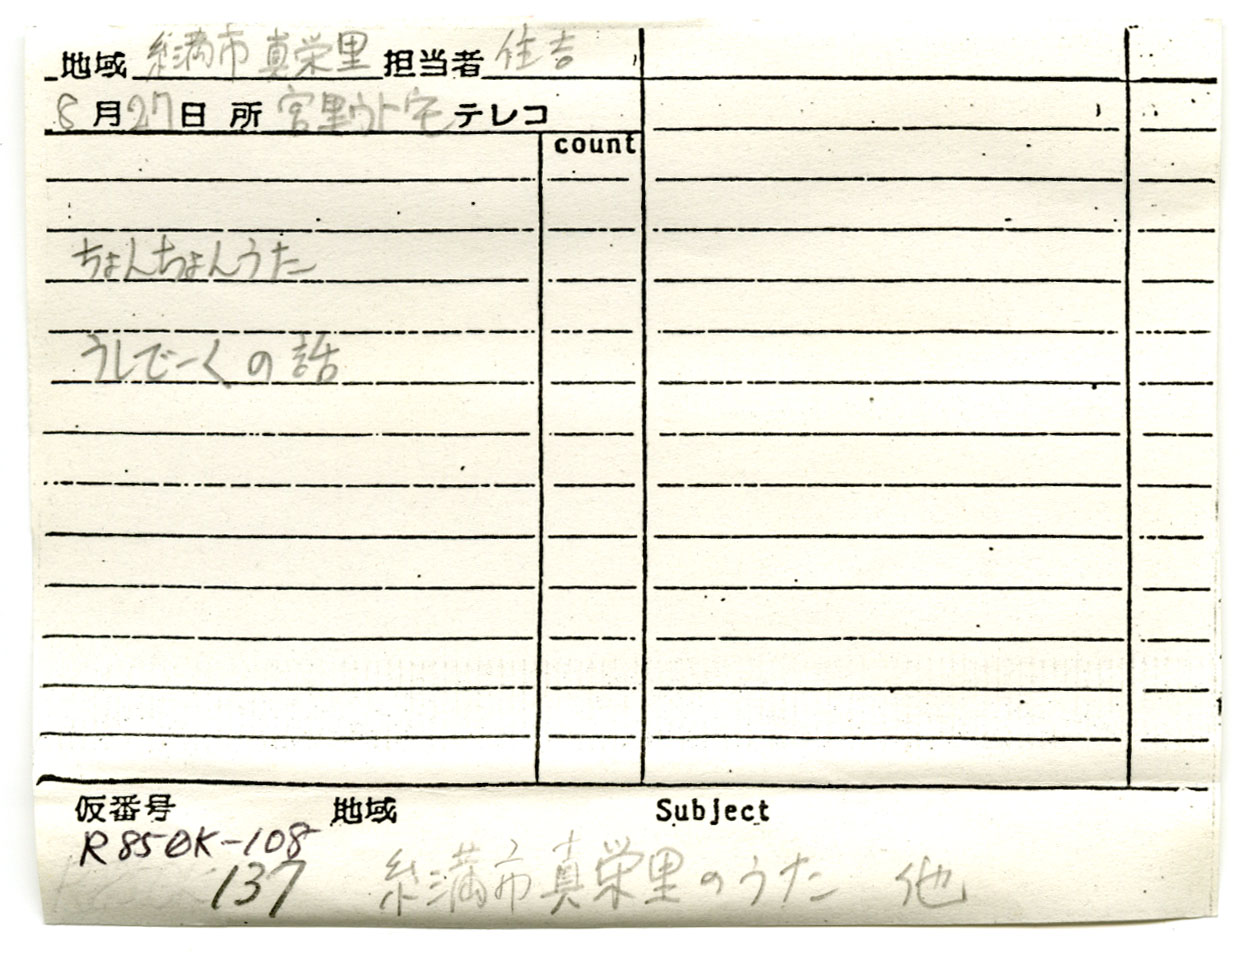 地域 糸満市真栄里 担当者 住吉
8月27日 所 宮里ウト宅 テレコ
count
ちょんちょんうた
うしでーくの話
仮番号 地域 Subject
R850K-108
137 糸満市真栄里のうた 他